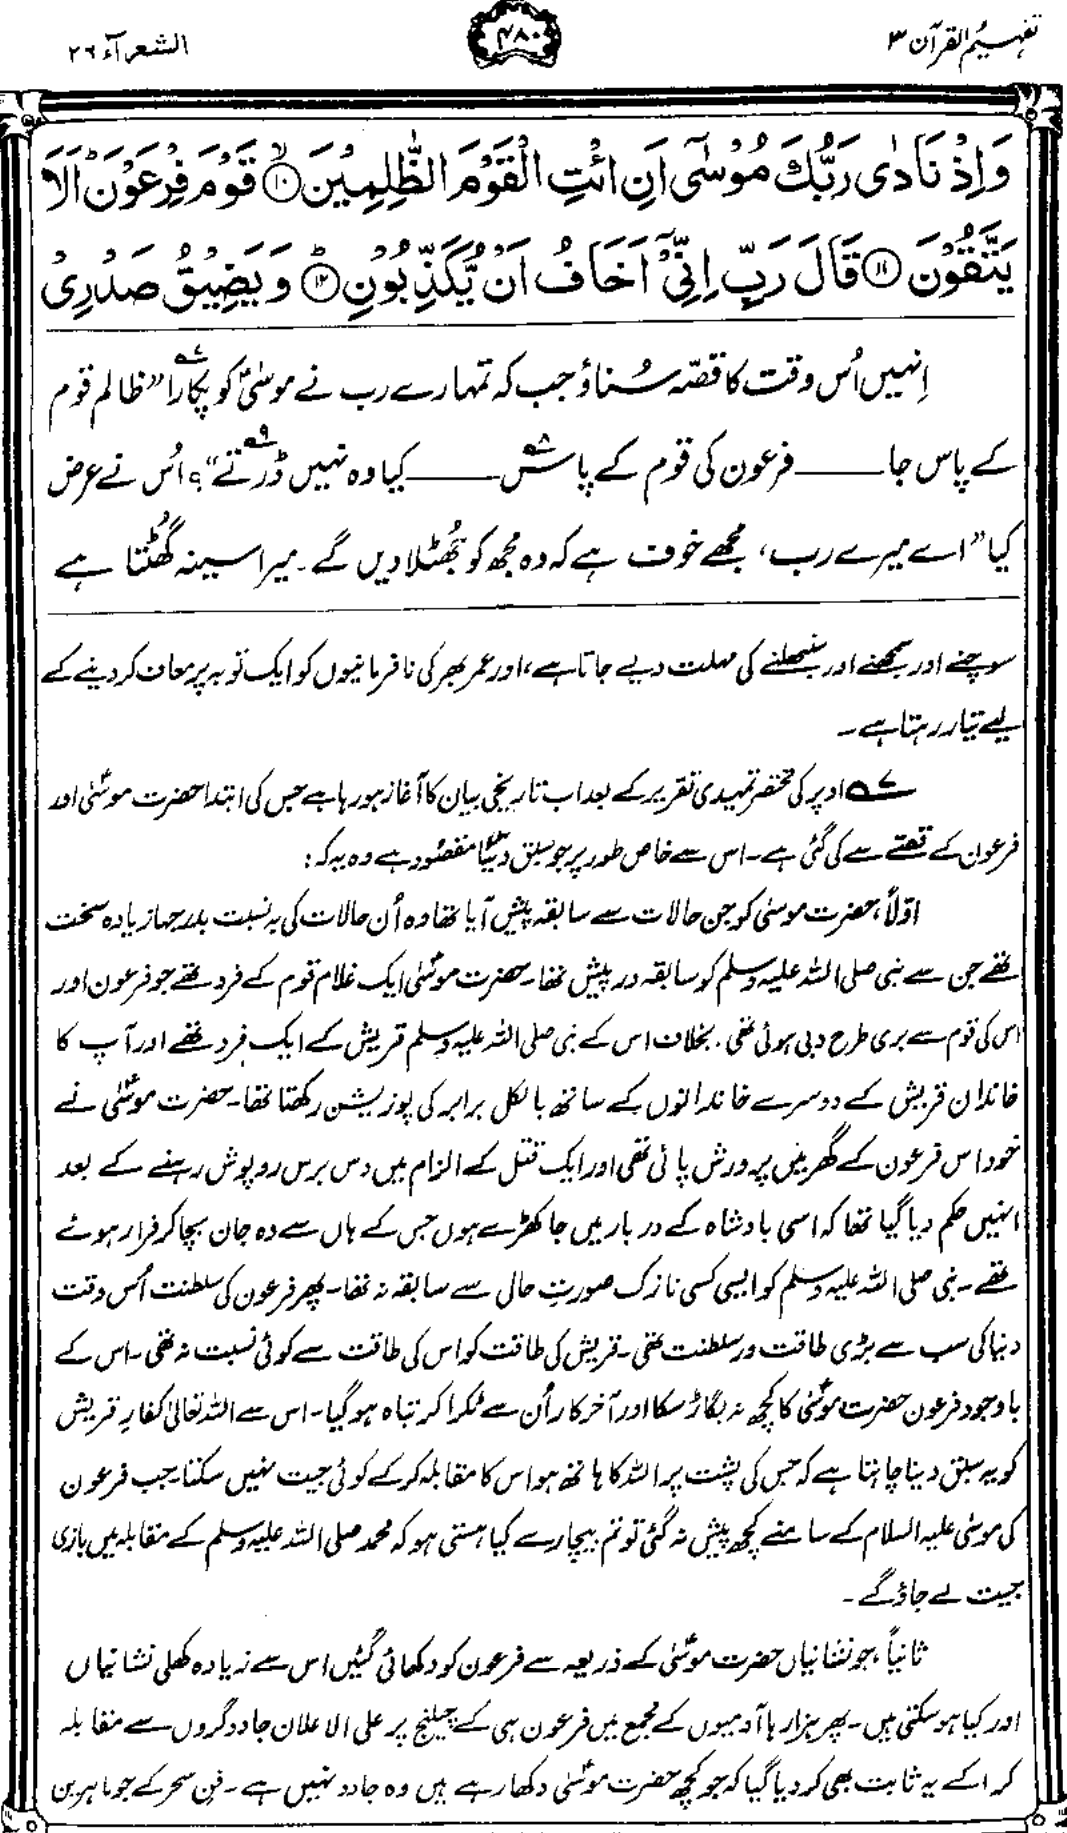 تفہیم القرآن ۳
۴۸۰
الشعرآء ۲۶
وَاِذْ نَادٰى رَبُّكَ مُوْسٰٓى اَنِ ائْتِ الْقَوْمَ الظّٰلِمِيْنَ ۙ﴿۱۰﴾ قَوْمَ فِرْعَوْنَ ؕ اَلَا
يَتَّقُوْنَ ﴿۱۱﴾ قَالَ رَبِّ اِنِّيْۤ اَخَافُ اَنْ يُّكَذِّبُوْنِ ؕ﴿۱۲﴾ وَيَضِيْقُ صَدْرِيْ
اِنہیں اُس وقت کا قصّہ سُناؤ جب کہ تمہارے رب نے موسٰیؑ کو پکارا ۷ "ظالم قوم
کے پاس جا —— فرعون کی قوم کے پاس ۸ —— کیا وہ نہیں ڈرتے ۹"؟ اُس نے عرض
کیا "اے میرے رب، مجھے خوف ہے کہ وہ مجھ کو جُھٹلا دیں گے۔ میرا سینہ گُھٹتا ہے
سوچنے اور سمجھنے اور سنبھلنے کی مہلت دیے جاتا ہے، اور عمر بھر کی نافرمانیوں کو ایک توبہ پر معاف کر دینے کے
لیے تیار رہتا ہے۔
۷ اوپر کی مختصر تمہیدی تقریر کے بعد اب تاریخی بیان کا آغاز ہو رہا ہے جس کی ابتدا حضرت موسٰیؑ اور
فرعون کے قصّے سے کی گئی ہے۔ اس سے خاص طور پر جو سبق دینا مقصُود ہے وہ یہ کہ:
اوّلاً، حضرت موسٰی کو جن حالات سے سابقہ پیش آیا تھا وہ اُن حالات کی بہ نسبت بدرجہا زیادہ سخت
تھے جن سے نبی صلی اللہ علیہ وسلم کو سابقہ درپیش تھا۔ حضرت موسٰیؑ ایک غلام قوم کے فرد تھے جو فرعون اور
اس کی قوم سے بری طرح دبی ہوئی تھی۔ بخلاف اس کے نبی صلی اللہ علیہ وسلم قریش کے ایک فرد تھے اور آپ کا
خاندان قریش کے دوسرے خاندانوں کے ساتھ بالکل برابر کی پوزیشن رکھتا تھا۔ حضرت موسٰیؑ نے
خود اس فرعون کے گھر میں پرورش پائی تھی اور ایک قتل کے الزام میں دس برس روپوش رہنے کے بعد
انہیں حکم دیا گیا تھا کہ اسی بادشاہ کے دربار میں جا کھڑے ہوں جس کے ہاں سے وہ جان بچا کر فرار ہوئے
تھے۔ نبی صلی اللہ علیہ وسلم کو ایسی کسی نازک صورتِ حال سے سابقہ نہ تھا۔ پھر فرعون کی سلطنت اُس وقت
دنیا کی سب سے بڑی طاقت ور سلطنت تھی۔ قریش کی طاقت کو اس کی طاقت سے کوئی نسبت نہ تھی۔ اس کے
باوجود فرعون حضرت موسٰیؑ کا کچھ نہ بگاڑ سکا اور آخرکار اُن سے ٹکرا کر تباہ ہو گیا۔ اس سے اللہ تعالیٰ کفارِ قریش
کو یہ سبق دینا چاہتا ہے کہ جس کی پُشت پر اللہ کا ہاتھ ہو اس کا مقابلہ کر کے کوئی جیت نہیں سکتا۔ جب فرعون
کی موسٰی علیہ السلام کے سامنے کچھ پیش نہ گئی تو تم بیچارے کیا ہستی ہو کہ محمد صلی اللہ علیہ وسلم کے مقابلہ میں بازی
جیت لے جاؤ گے۔
ثانیاً، جو نشانیاں حضرت موسٰیؑ کے ذریعہ سے فرعون کو دکھائی گئیں اس سے زیادہ کھلی نشانیاں
اور کیا ہو سکتی ہیں۔ پھر ہزارہا آدمیوں کے مجمع میں فرعون ہی کے چیلنج پر علی الاعلان جادوگروں سے مقابلہ
کرا کے یہ ثابت بھی کر دیا گیا کہ جو کچھ حضرت موسٰیؑ دکھا رہے ہیں وہ جادو نہیں ہے۔ فنِ سحر کے جو ماہرین